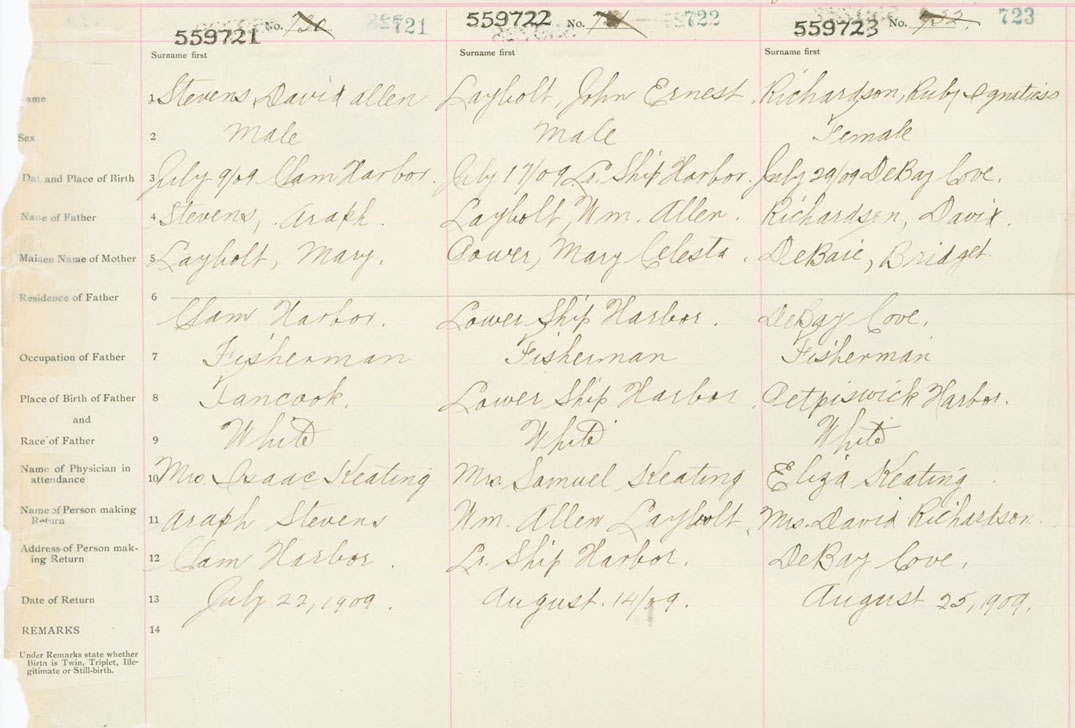 559721 No. 730 721 559722 No. 731 722 559723 No. 732 723
Surname first Surname first Surname first
ame 1 Stevens, David allen Laybolt, John Ernest Richardson, Ruby Ignatiass
Sex 2 Male Male Female
Dat and Place of Birth 3 July 9/09 Clam Harbor. July 17/09 Lr. Ship Harbor. July 29/09 DeBay Cove.
Name of Father 4 Stevens, Araph. Laybolt, Wm. Allen. Richardson, David.
Maiden Name of Mother 5 Laybolt, Mary. Power, Mary Celesta. DeBaie, Bridget
Residence of Father 6
Clam Harbor. Lower Ship Harbor. DeBay Cove.
Occupation of Father 7 Fisherman Fisherman Fisherman
Place of Birth of Father 8 Tancook. Lower Ship Harbor. Petpiswick Harbor.
and
Race of Father 9 White White White
Name of Physician in
attendance 10 Mrs. Isaac Keating Mrs. Samuel Keating Eliza Keating
Name of Person making
Return 11 Araph Stevens Wm. Allen Laybolt Mrs. David Richardson
Address of Person mak-
ing Return 12 Clam Harbor. Lr. Ship Harbor. DeBay Cove.
Date of Return 13 July 22, 1909. August. 14/09. August 25, 1909.
REMARKS 14
Under Remarks state whether
Birth is Twin, Triplet, Ille-
gitimate or Still-birth.